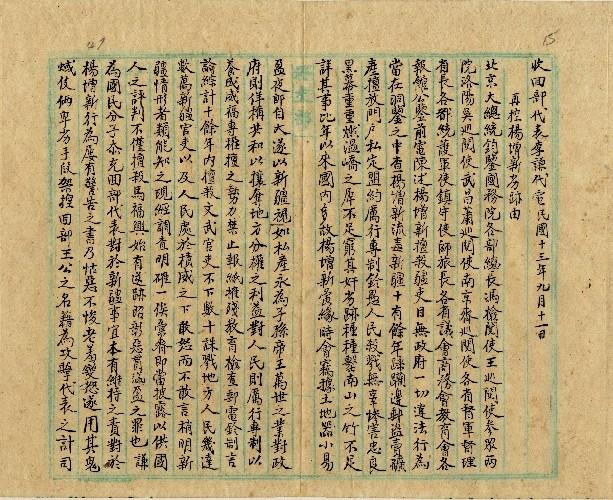 15
收回部代表李謙代電民國十三年九月十一日
再控楊增新劣跡由
北京大總統鈞鑒國務院各部總長馮檢閱使王巡閱使參眾兩
院洛陽吳巡閱使武昌蕭巡閱使南京齊巡閱使各省督軍督理
省長各都統護軍使鎮守使師旅長各省議會商務會教育會各
報館公鑒前電陳述楊增新擅殺疆吏目無政府一切違法行為
當在洞鑒之中查楊增新流毒新疆十有餘年蹂躪邊鄙盜賣礦
產擅放門戶私定盟約厲行專制錮愚人民殺戮無辜慘害忠良
黑幕重重燃溫嶠之犀不足窮其奸劣跡種種罄南山之竹不足
詳其事比年以來國內多故楊增新夤緣時會竊據土地器小易
盈夜郎自大遂以新疆視如私產永為子孫帝王萬世之業對政
府則佯稱共和以攘奪地方分權之利益對人民則厲行專制以
養成威福專權擅之勢力禁止報紙摧殘教育檢查郵電鈐制言
論綜計十餘年內擅殺文武官吏不下數十誅戮地方人民幾達
數萬新疆官吏以及人民處於積威之下敢怒而不敢言稍明新
疆情形者類能知之現經調查明確一俟彙齊即當披露以供國
人之評判不僅擅殺馬福興始有逆跡昭彰惡貫滿盈之罪也謙
為國民分子忝充回部代表對於新疆事宜本有維持之責對於
楊增新行為屢有警告之書乃怙惡不悛老羞變怒遂用其鬼
蜮伎倆卑劣手段架捏回部王公之名籍為攻擊代表之計司